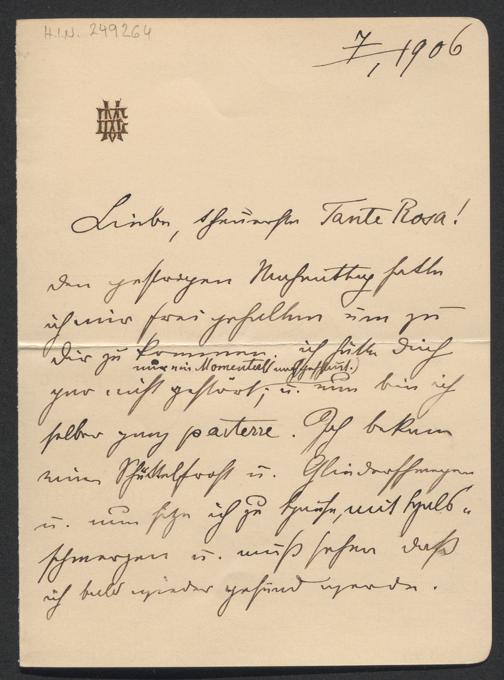 H.I.N. 249264
7/, 1906
Liebe, theuerste Tante Rosa!
den gestrigen Nachmittag hatte
ich mir frei gehalten um zu
Dir zu kommen. ich hätte Dich
nur ein Momenterl
gar nicht gestört; u. nun bin ich
selber ganz parterre. Ich bekam
einen Schüttelfrost u. Gliederschmerzen
u. nun sitze ich zu Hause, mit Hals-
schmerzen u. muß sehen daß
ich bald wieder gesund werde.